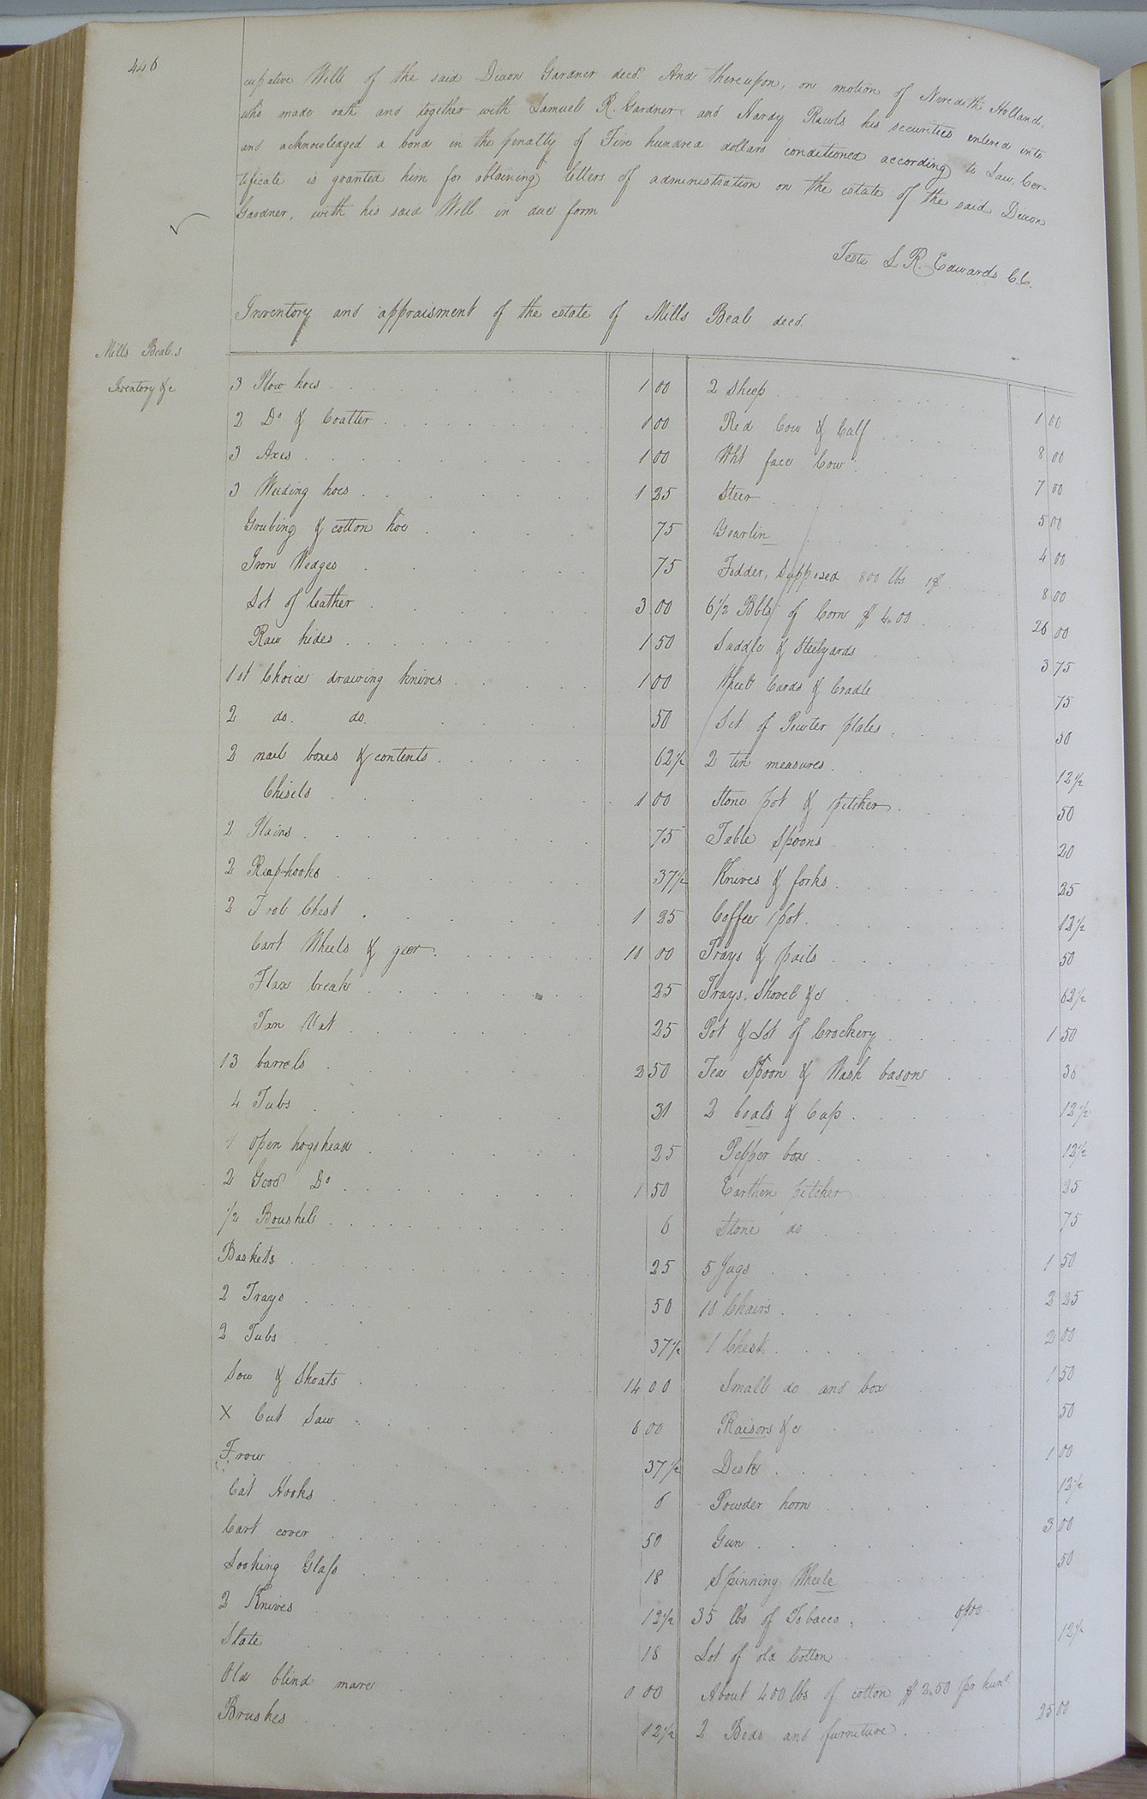 446
cupative Will of the said Dixon Gardner decd. And thereupon, on motion of Meredith Holland,
who made oath and together with Samuel R. Gardner and Hardy Rawls his securities entered into
and acknowledged a bond in the penalty of Five hundred dollars conditioned according to Law, Cer-
tificate is granted him for obtaining letters of administration on the estate of the said Dixon
Gardner, with his said Will in due form
Teste L. R. Edwards C.C.
Inventory and appraisment of the estate of Mills Beal decd.
Mills Beal.s
Inventory &c
3 Plow hoes 1 00
2 Do & Coatter 1 00
3 Axes 1 00
3 Weeding hoes 1 25
Grubing & cotton hoe 75
Iron Wedges 75
Lot of leather 3 00
Raw hides 1 50
1st Choice drawing knives 1 00
2 do. do. 50
2 nail boxes & contents 62½
Chisels 1 00
2 Plains 75
2 Reap-hooks 37½
2 Chest 1 25
Cart Wheels & geer 10 00
Flax break 25
Tan Vat 25
13 barrels 2 50
4 Tubs 31
1 open hogshead 25
2 Good Do 1 50
½ Boushel 6
Baskets 25
2 Trays 50
2 Tubs 37½
Sow & Shoats 14 00
X Cut Saw 6 00
Frow 37½
Cat Hooks 6
Cart cover 50
Looking Glass 18
2 Knives 12½
Slate 18
Old blind mare 0 00
Brushes 12½
2 Sheep 1 00
Red Cow & Calf 8 00
Wht face Cow 7 00
Steer 5 00
Yearlin 4 00
Fodder, Supposed 800 lbs 8 00
6½ Bbls of Corn $4.00 26 00
Saddle & Steelyards 3 75
Wheel Cards & Cradle 75
Set of Pewter plates 50
2 tin measures 12½
Stone pot & pitcher 50
Table Spoons 20
Knives & forks 25
Coffee pot 12½
Trays & pails 50
Trays, Shovel &c 62½
Pot & Lot of Crockery 1 50
Tea Spoon & Wash bason
2 & Cap 12½
Pepper box 12½
Earthen pitcher 25
Stone do 75
5 Jugs 1 50
10 Chairs 2 25
1 Chest 2 00
Small do and box 1 50
Raisors &c 50
Desk 1 00
Powder horn 12½
Gun 3 00
Spinning Wheele 50
35 lbs of Tobacco
Lot of old Cotton 12½
About 400 lbs of cotton $2.50 pr hund
2 Beds and furniture 25 00